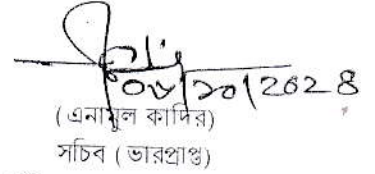 ০৮/১০/২০২৪
(এনামুল কাদির)
সচিব (ভারপ্রাপ্ত)